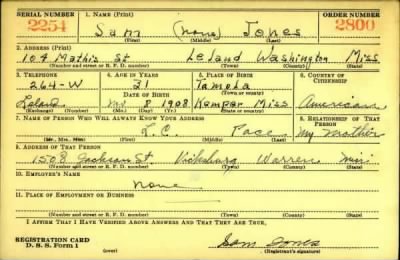 SERIAL NUMBER 1. NAME (Print) ORDER NUMBER
2254 Sam (none) Jones 2800
(First) (Middle) (Last)
2. ADDRESS (Print)
104 Mathis St Leland Washington Miss
(Number and street or R. F. D. number) (Town) (County) (State)
3. TELEPHONE 4. AGE IN YEARS 5. PLACE OF BIRTH 6. COUNTRY OF CITIZENSHIP
264-W 31 Tamola
DATE OF BIRTH (Town or county)
Leland 8 1908 Kemper Miss American
(Exchange) (Number) (Mo.) (Day) (Yr.) (State or country)
7. NAME OF PERSON WHO WILL ALWAYS KNOW YOUR ADDRESS 8. RELATIONSHIP OF THAT PERSON
L. C. Pace My Mother
(Mr., Mrs., Miss) (First) (Middle) (Last)
9. ADDRESS OF THAT PERSON
1508 Jackson St. Vicksburg Warren Miss
(Number and street or R. F. D. number) (Town) (County) (State)
10. EMPLOYER'S NAME
None
11. PLACE OF EMPLOYMENT OR BUSINESS
(Number and street or R. F. D. number) (Town) (County) (State)
I AFFIRM THAT I HAVE VERIFIED ABOVE ANSWERS AND THAT THEY ARE TRUE.
REGISTRATION CARD
D. S. S. Form 1 Sam Jones
(Registrant's signature)